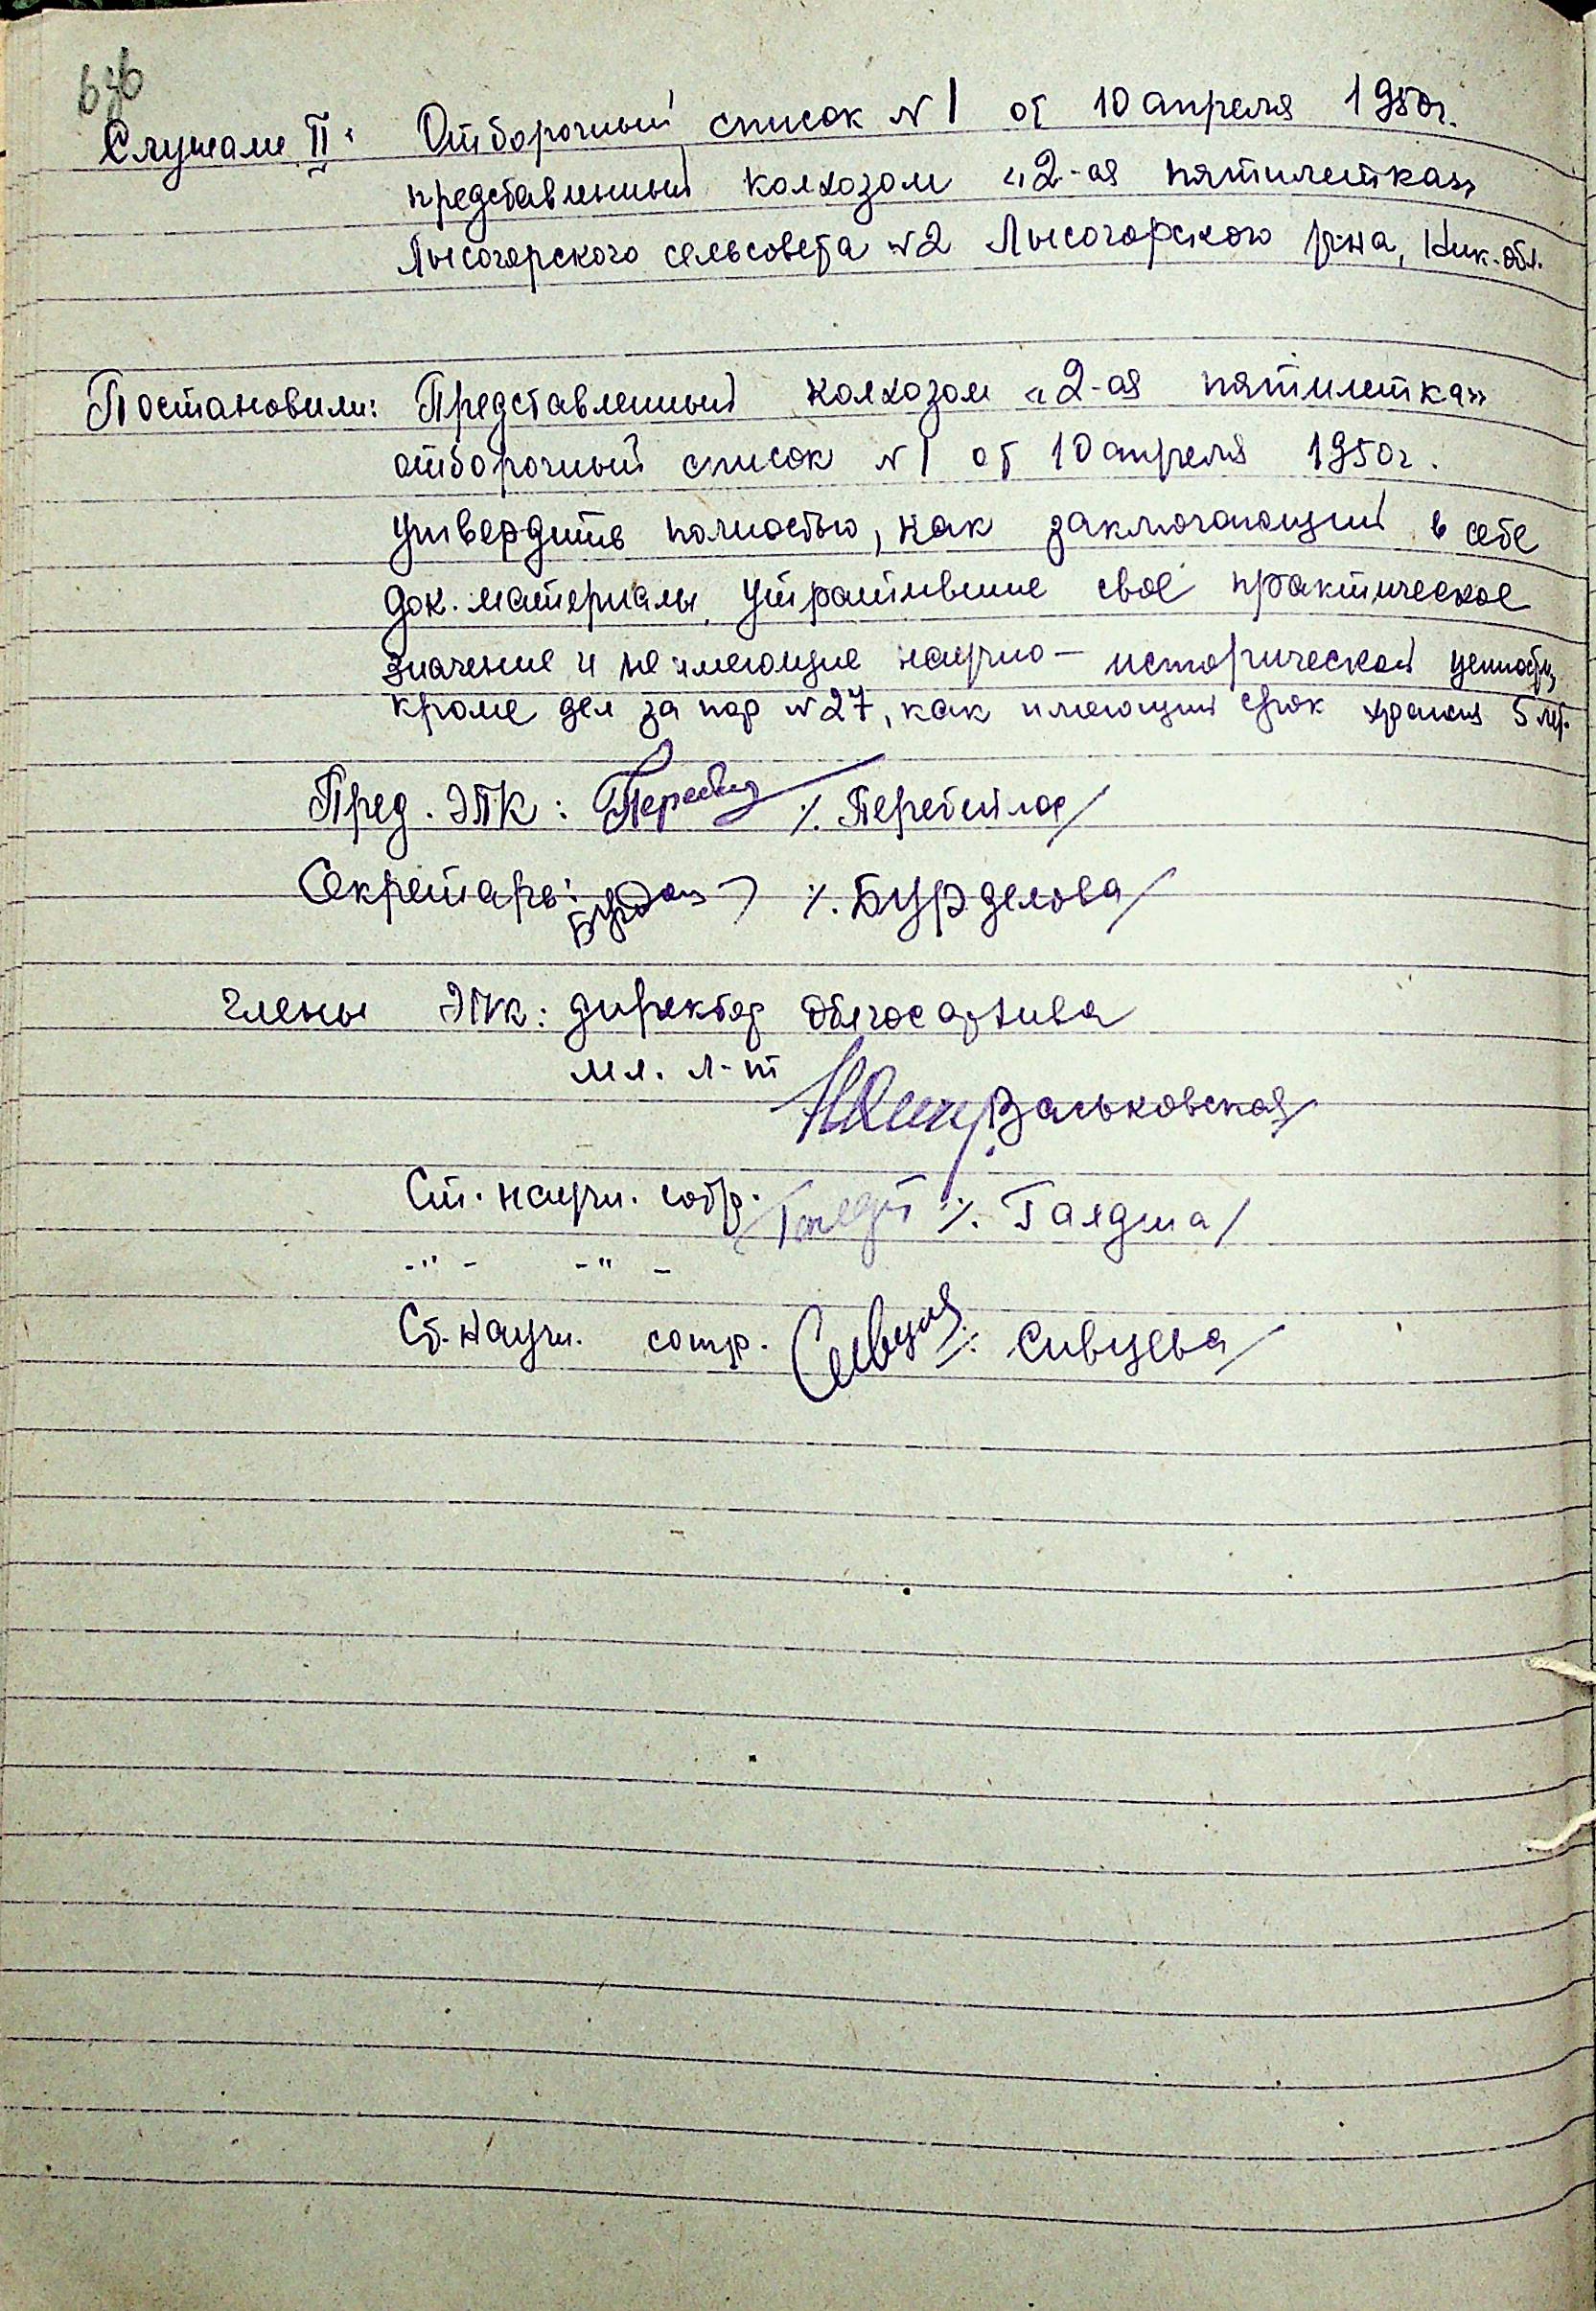 Слушали II: Отборочный список №1 от 10 апреля 1950г.
представленный колхозом «2-ая пятилетка»
Лысогорского сельсовета №2 Лысогорского р-на, Ник. обл.
Постановили: Представленный колхозом «2-ая пятилетка»
отборочный список №1 от 10 апреля 1950г.
утвердить полностью, как заключающий в себе
док. материалы, утратившие своё практическое
значение и не имеющие научно-исторической ценности,
кроме дел за пор №27, как имеющий срок хранен 5 лет.
Пред. ЭПК: /. Перебийнос/
Секретарь: /. Бурделова/
Члены ЭПК: директор Облгосархива
мл. л-т Васьковская/
Ст. научн. сотр. /. Галдма/
-"- -"-
Ст. научн. сотр. /. Сивцева/